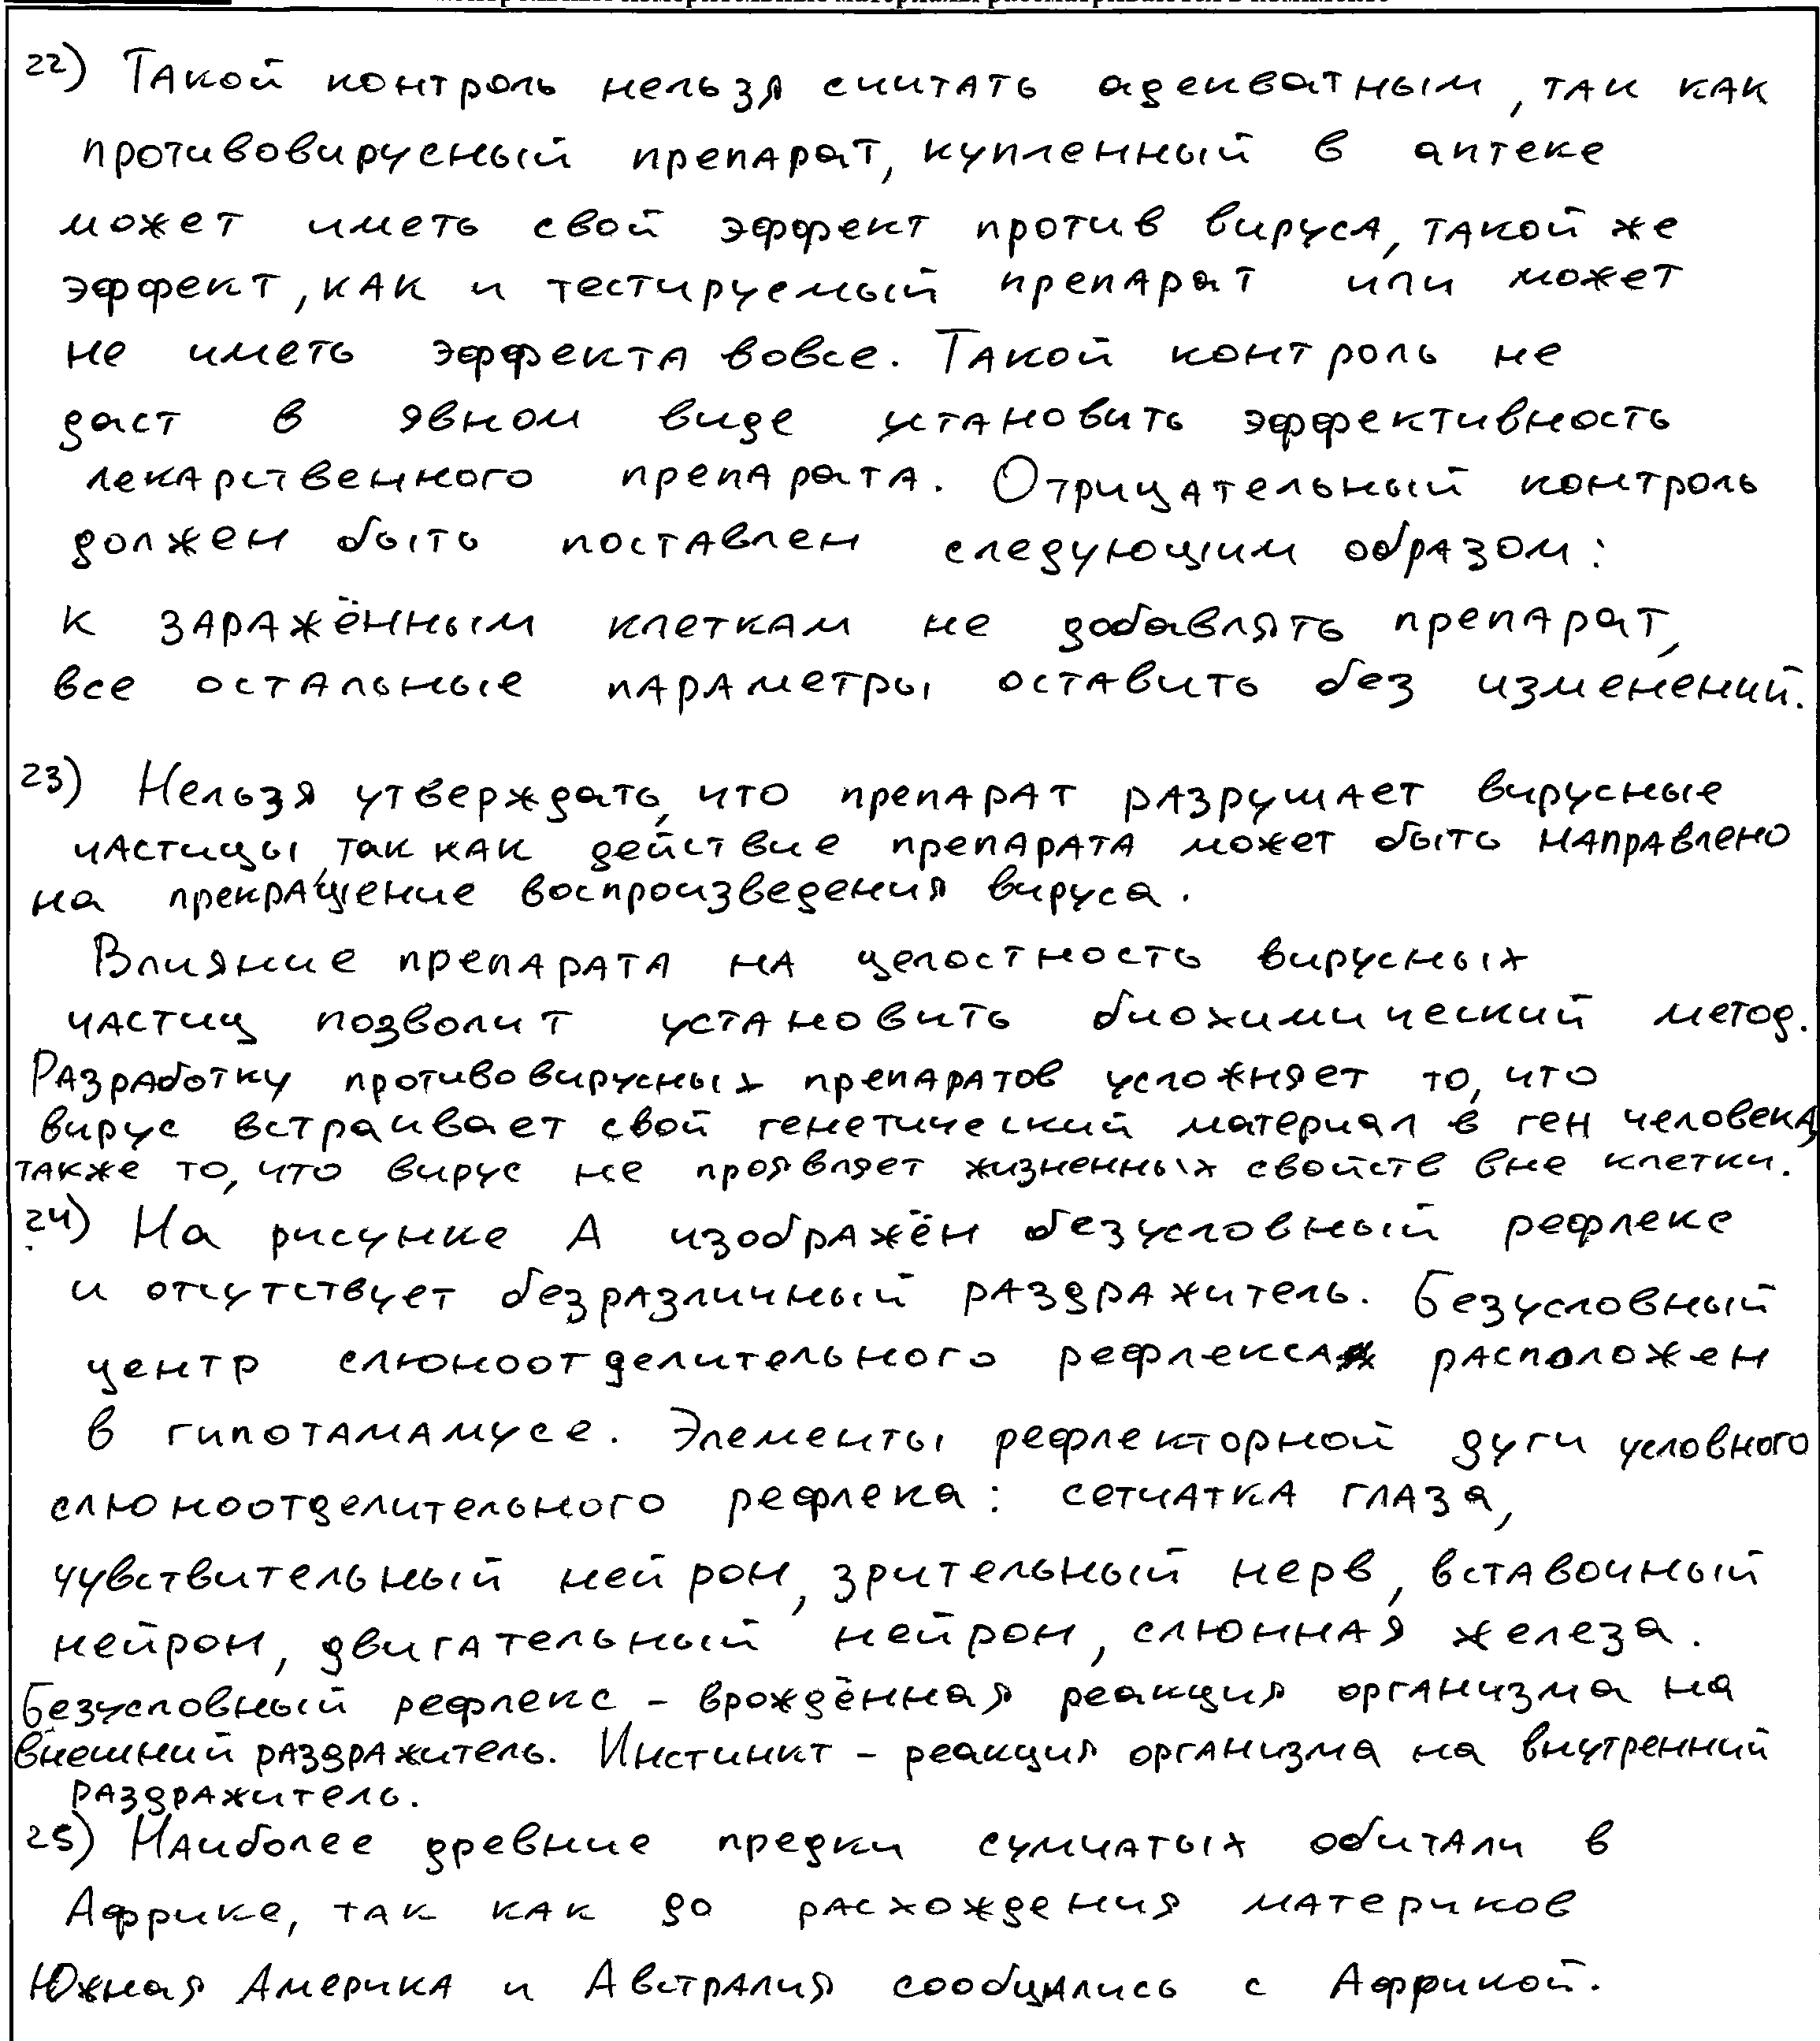 22) Такой контроль нельзя считать адекватным, так как
противовирусный препарат, купленный в аптеке
может иметь свой эффект против вируса, такой же
эффект, как и тестируемый препарат или может
не иметь эффекта вовсе. Такой контроль не
даст в явном виде установить эффективность
лекарственного препарата. Отрицательный контроль
должен быть поставлен следующим образом:
к заражённым клеткам не добавлять препарат,
все остальные параметры оставить без изменений.
23) Нельзя утверждать, что препарат разрушает вирусные
частицы, так как действие препарата может быть направлено
на прекращение воспроизведения вируса.
Влияние препарата на целостность вирусных
частиц позволит установить биохимический метод.
Разработку противовирусных препаратов усложняет то, что
вирус встраивает свой генетический материал в ген человека,
также то, что вирус не проявляет жизненных свойств вне клетки.
24) На рисунке А изображён безусловный рефлекс
и отсутствует безразличный раздражитель. Безусловный
центр слюноотделительного рефлекса расположен
в гипотамамусе. Элементы рефлекторной дуги условного
слюноотделительного рефлека: сетчатка глаза,
чувствительный нейрон, зрительный нерв, вставочный
нейрон, двигательный нейрон, слюнная железа.
Безусловный рефлекс - врождённая реакция организма на
внешний раздражитель. Инстинкт - реакция организма на внутренний
раздражитель.
25) Наиболее древние предки сумчатых обитали в
Африке, так как до расхождения материков
Южная Америка и Австралия сообщались с Африкой.